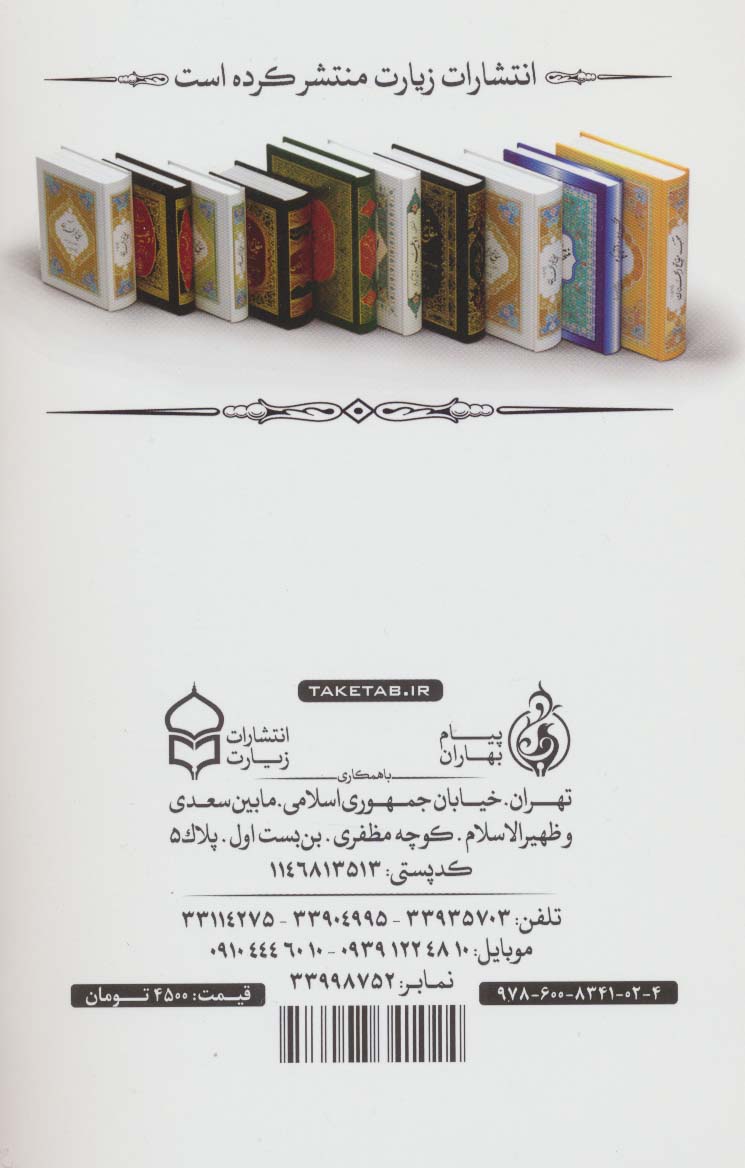 انتشارات زیارت منتشر کرده است
TAKETAB.IR
پیام
بهاران
انتشارات
زیارت
باهمکاری
تهران. خیابان جمهوری اسلامی. مابین سعدی
و ظهیرالاسلام. کوچه مظفری. بن‌بست اول. پلاک ۵
کدپستی: ۱۱۴۶۸۱۳۵۱۳
تلفن: ۳۳۹۳۵۷۰۳ - ۳۳۹۰۴۹۹۵ - ۳۳۱۱۴۲۷۵
موبایل: ۱۰ ۴۸ ۱۲۲ ۰۹۳۹ - ۱۰ ۶۰ ۴۴۴ ۰۹۱۰
نمابر: ۳۳۹۹۸۷۵۲
۹۷۸-۶۰۰-۸۳۴۱-۰۲-۴
قیمت: ۴۵۰۰ تومان